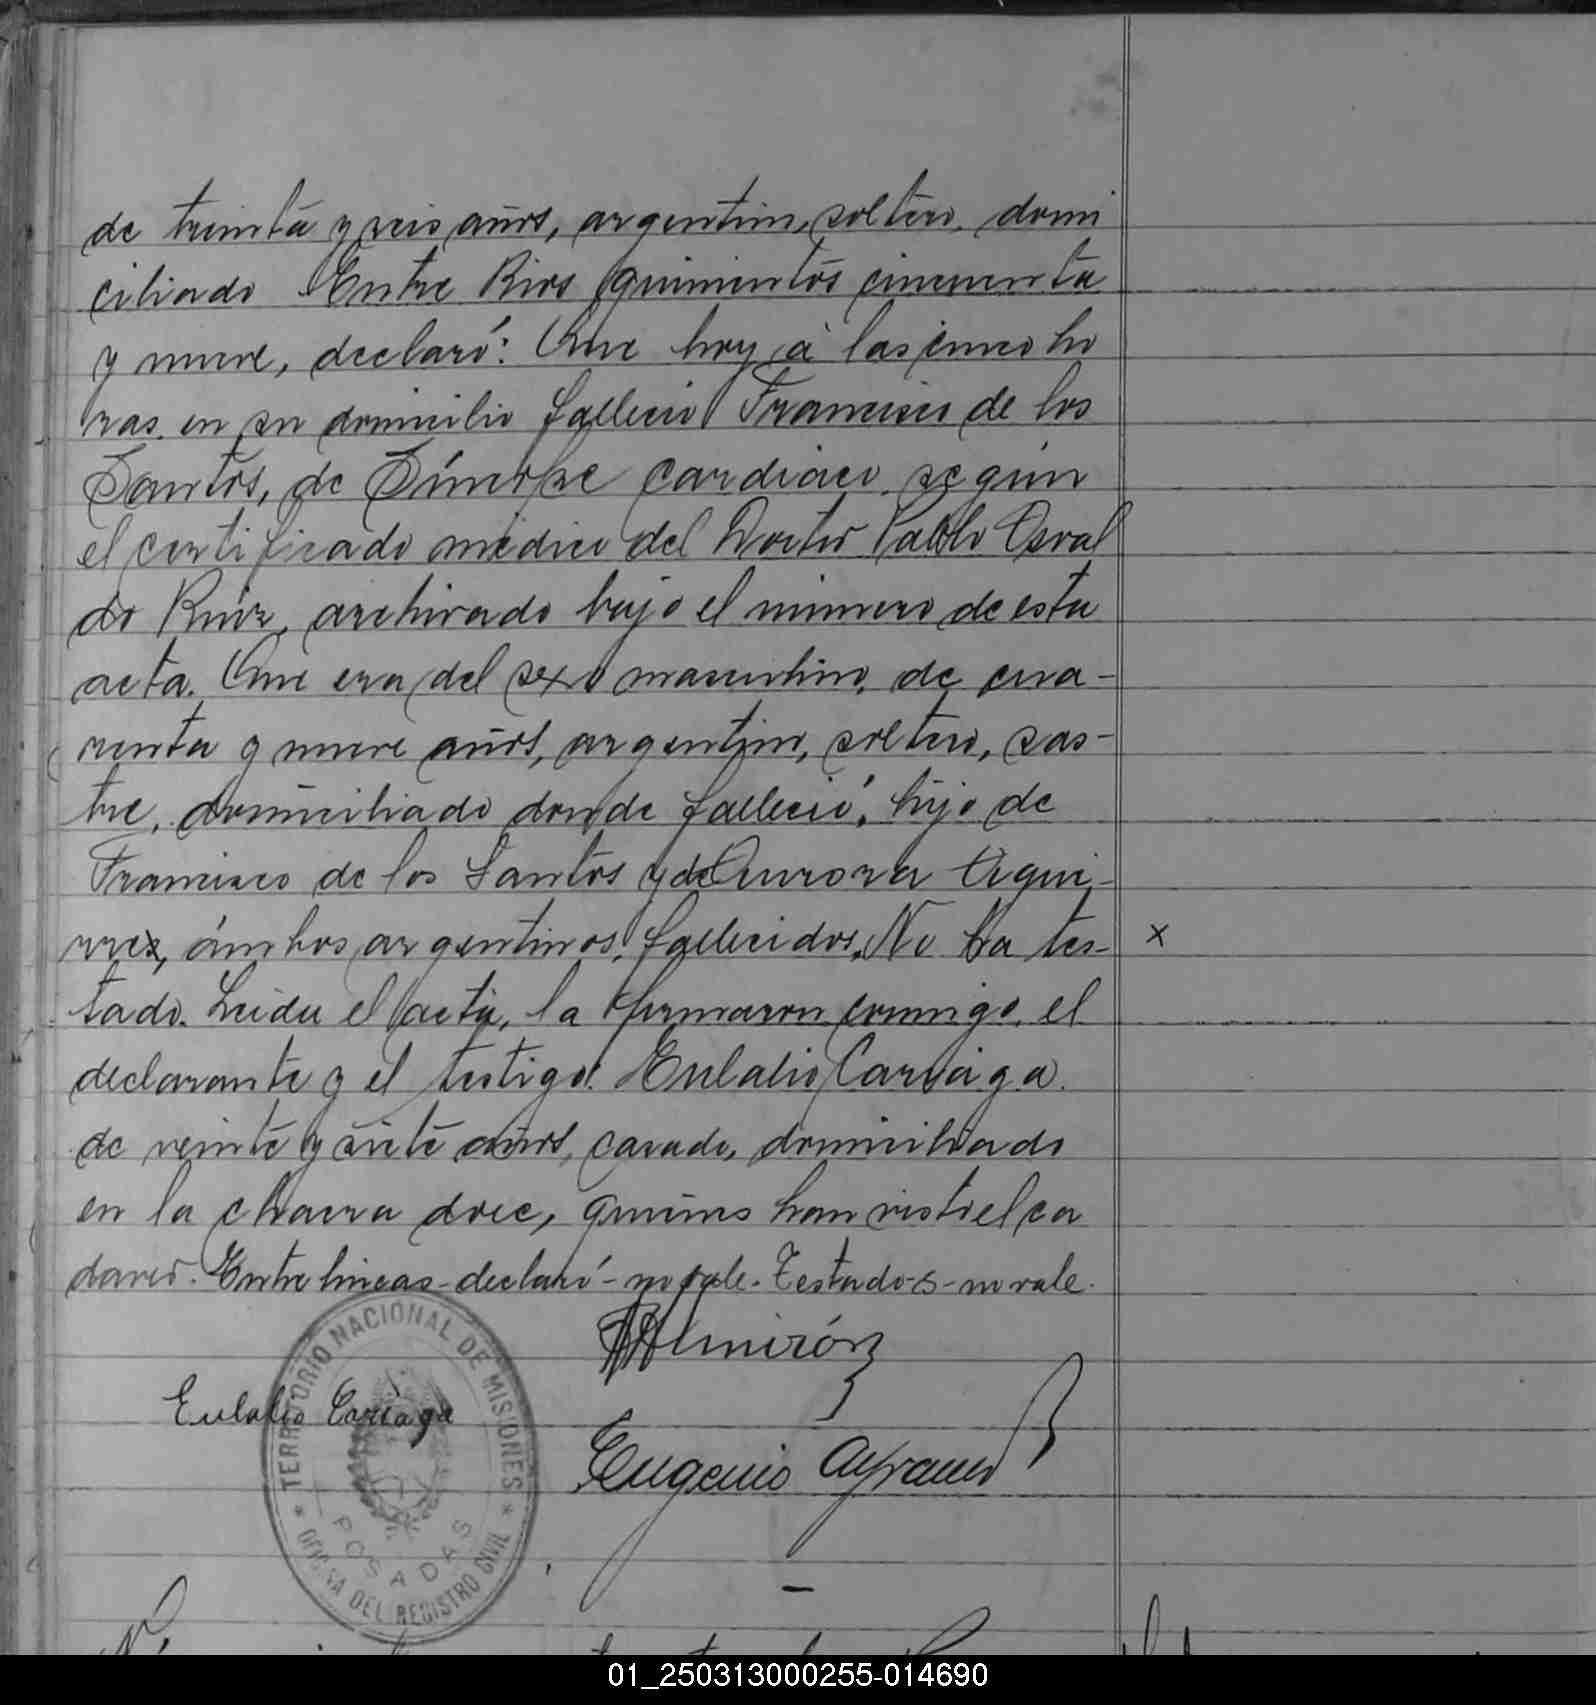 de treinta y seis años, argentino, soltero, domi
ciliado Entre Rios quinientos cincuenta
y nueve, declaró: Que hoy á las cinco ho
ras en su domicilio falleció Francisco de los
Santos, de Síncope cardiaco según
el certificado médico del Doctor Pablo Osval
do Ruiz, archivado bajo el número de esta
acta. Que era del sexo masculino, de cua-
renta y nueve años, argentino, soltero, sas-
tre, domiciliado donde falleció, hijo de
Francisco de los Santos y de Aurora Aqui-
rres, ámbos argentinos, fallecidos. No ha tes- x
tado. Leida el acta, la firmaron conmigo, el
declarante y el testigo. Eulalio Cariaga.
de veinte y siete años, casado, domiciliado
en la chacra doce, quienes han visto el ca
daver. Entre lineas-declaró-no vale. Testado-s-no vale.
Almirón
Eulalio Cariaga
Eugenio
TERRITORIO NACIONAL DE MISIONES
POSADAS
* OFICINA DEL REGISTRO CIVIL *
01_250313000255-014690